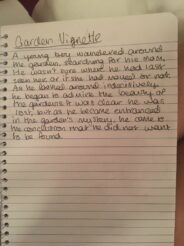 Garden Vignette
A young boy wandered around
the garden, searching for his mom,
He wasn't sure where he had last
seen her or if she had waved or not.
As he looked around indecisively,
he began to admire the beauty of
the gardens. It was clear he was
lost, but as he became entranced
in the garden's mystery, he came to
the conclusion that he did not want
to be found.